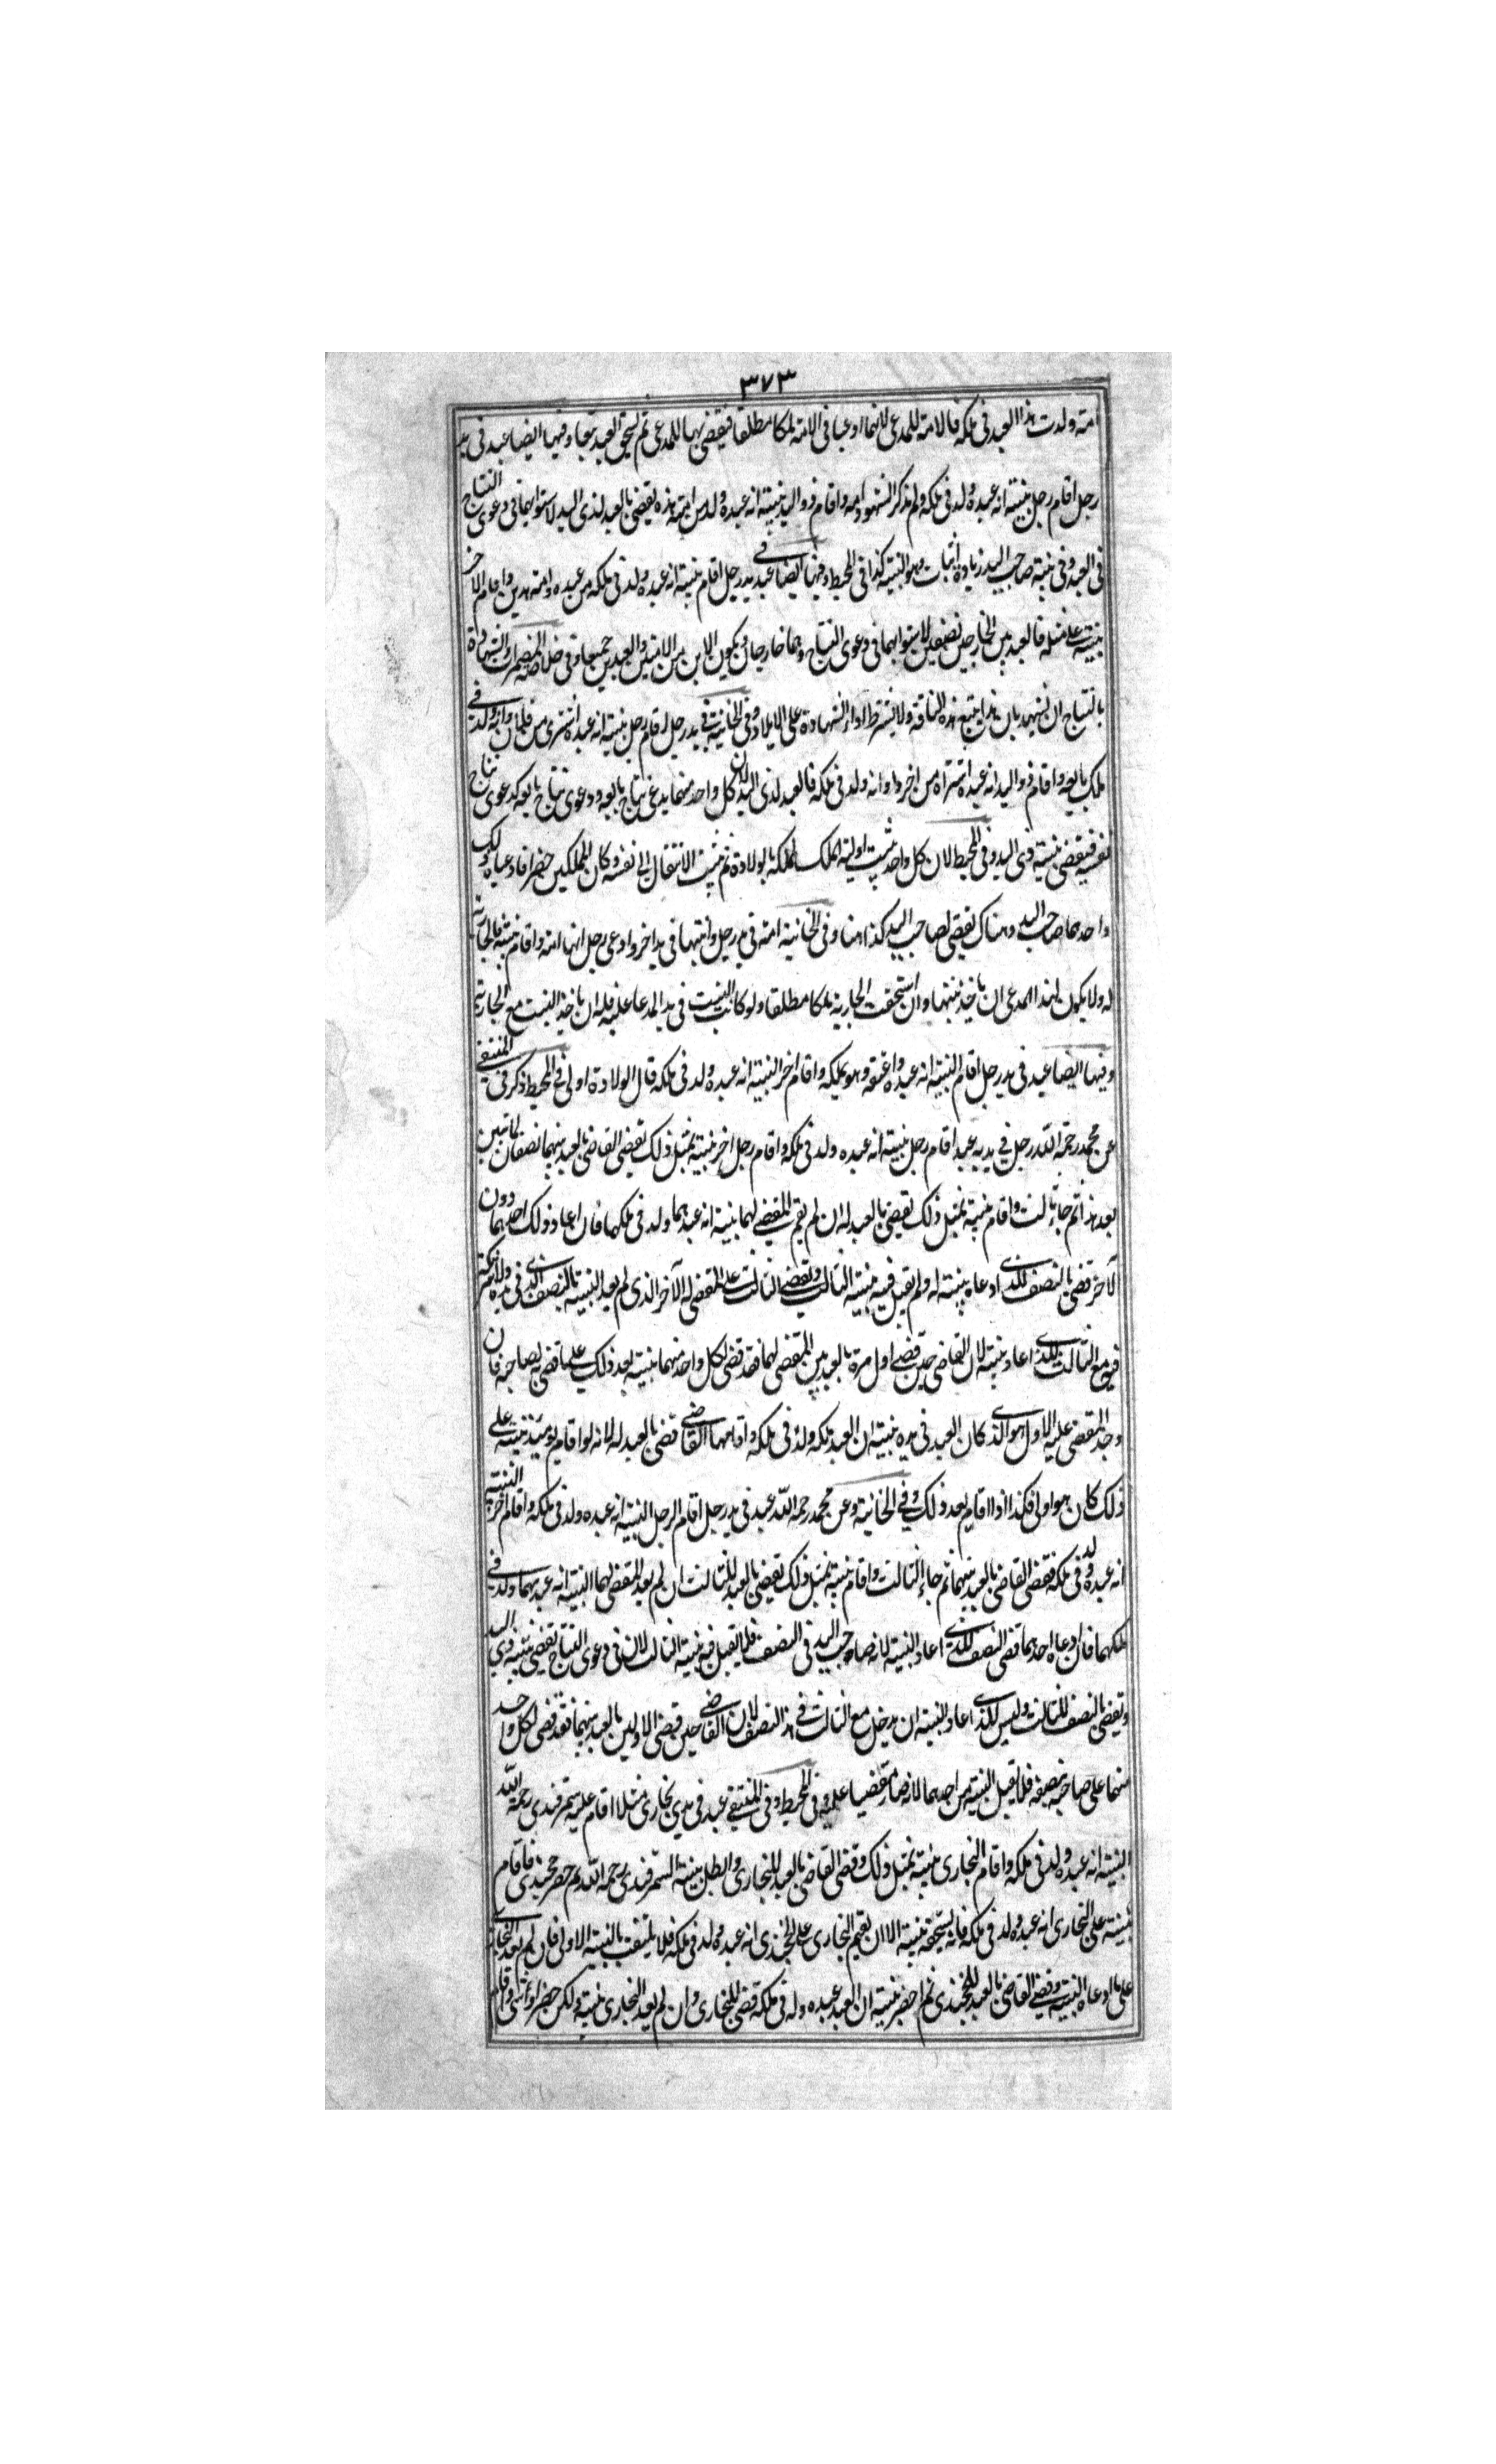 ٣٧٣
امته ولدت هذا العبد فى ملكه فالامة للمدعى لانهما ادعيا فى الامة ملكا مطلقا فيقضى بها للمدعى ثم يستحق العبد تبعا وفيها ايضا عبد فى يد
رجل اقام رجل بينته انه عبده ولد فى ملكه ولم يذكر الشهود امه واقام ذو اليد بينته انه عبده ولد من امته هذه يقضى بالعبد لذى اليد لاستوائهما فى دعوى النتاج
فى العبد وفى بينة صاحب اليد زيادة اثبات وهو البينة كذا فى المحيط وفيها ايضا عبد فى يد رجل اقام بينته انه عبده ولد فى ملكه من عبده وامته هذين واقام الاخر
بينته على مثله فالعبد بين الخارجين نصفين لاستوائهما فى دعوى النتاج وهما خارجان ويكون الابن من الامتين والعبدين جميعا وفى المضمرات والشهادة
بالنتاج ان يشهد بان هذا يتبع هذه الناقة ولا يشترط اداء الشهادة على الايلاد وفى الخانية فى يد رجل اقام رجل بينته انه عبده اشترى من فلان وانه ولد فى
ملك بايعه واقام ذو اليد انه عبده اشتراه من اخر وانه ولد فى ملكه فالعبد لذى اليد لان كل واحد منهما يدعى نتاج بايعه ودعوى نتاج بايعه كدعوى نتاج
نفسه فيقضى ببينة ذى اليد وفى المحيط لان كل واحد يثبت اولية الملك لمملكه بالولادة ثم يثبت الانتقال الى نفسه وكان المملكين حضرا فادعياه ذلك
واحدهما صاحب اليد وهناك يقضى لصاحب اليد كذا هنا وفى الخانية امة فى يد رجل وابنتها فى يد اخر وادعى رجل انها امته واقام بينته فالجارية
له ولا يكون لهذا المدعى ان ياخذ بنتها وان استحقت الجارية ملكا مطلقا ولو كانت البنت فى يد المدعا عليه فله ان ياخذ البنت مع الجارية
وفيها ايضا عبد فى يد رجل اقام البينة انه عبده واعتقه وهو يملكه واقام اخر البينة انه عبده ولد فى ملكه قال الولادة اولى وفى المحيط ذكر فى المنتقى
عن محمد رحمه الله رجل فى يديه عبد اقام رجل بينته انه عبده ولد فى ملكه واقام رجل اخر بينته بمثل ذلك يقضى القاضى بالعبد بينهما نصفان
بعد هذا ثم جاء ثالث واقام بينته بمثل ذلك يقضى بالعبد له ان لم يقم المقضى لهما بينة انه عبدهما ولد فى ملكهما فان اعاد ذلك احدهما دون
الآخر قضى بالنصف للذى ادعاه بينته له ولم يقبل فيه بينة الثالث ويقضى الثالث على المقضى له الآخر الذى لم يعد البينة بالنصف الذى فى يده ولا شركة
فيه مع الثالث للذى اعاد بينته لان القاضى حين قضى اول مرة بالعبد بين المقضى لهما فقد قضى لكل واحد منهما بينته بعد ذلك على ما قضى به لصاحبه فان
وجد المقضى عليه الاول هو الذى كان العبد فى يده بينته ان العبد ملكه ولد فى ملكه واقامها القاضى قضى بالعبد له لانه لو اقام يومئذ بينته على
ذلك كان هو اولى فكذا اذا اقام بعد ذلك وفى الخانية وعن محمد رحمه الله عبد فى يد رجل اقام الرجل البينة انه عبده ولد فى ملكه واقام اخر البينة
انه عبده ولد فى ملكه فقضى القاضى بالعبد بينهما ثم جاء الثالث واقام بينته بمثل ذلك يقضى بالعبد للثالث ان لم يعد المقضى لهما البينة انه عبدهما ولد فى
ملكهما فان ادعاه احدهما قضى النصف للذى اعاد البينة لانه صاحب اليد فى النصف فلا يقبل فيه بينة الثالث لان فى دعوى النتاج يقضى ببينة ذى اليد
ويقضى بالنصف للثالث وليس للذى اعاد البينة ان يدخل مع الثالث فى هذا النصف لان القاضى حين قضى الاولين بالعبد بينهما فقد قضى لكل واحد
منهما على صاحبه بنصفه فلا يقبل البينة من احدهما لانه صار مقضيا عليه وفى المحيط وفى المنتقى عبد فى يدى بخارى مثلا اقام عليه سمرقندى رحمه الله
البينة انه عبده ولد فى ملكه واقام البخارى بينته بمثل ذلك وقضى القاضى بالعبد للبخارى وابطل بينة السمرقندى رحمه الله ثم حضر خجندى فاقام
بينته على البخارى انه عبده ولد فى ملكه فانه يستحقه بينته الا ان يقيم البخارى على الخجندى انه عبده ولد فى ملكه فلا يلتفت بالبينة الاولى فان لم يعد البخارى
على ما ادعاه البينة وقضى القاضى بالعبد للخجندى ثم احضر بينته ان العبد عبده ولد فى ملكه قضى للبخارى وان لم يعد البخارى بينته ولكن حضر واقام